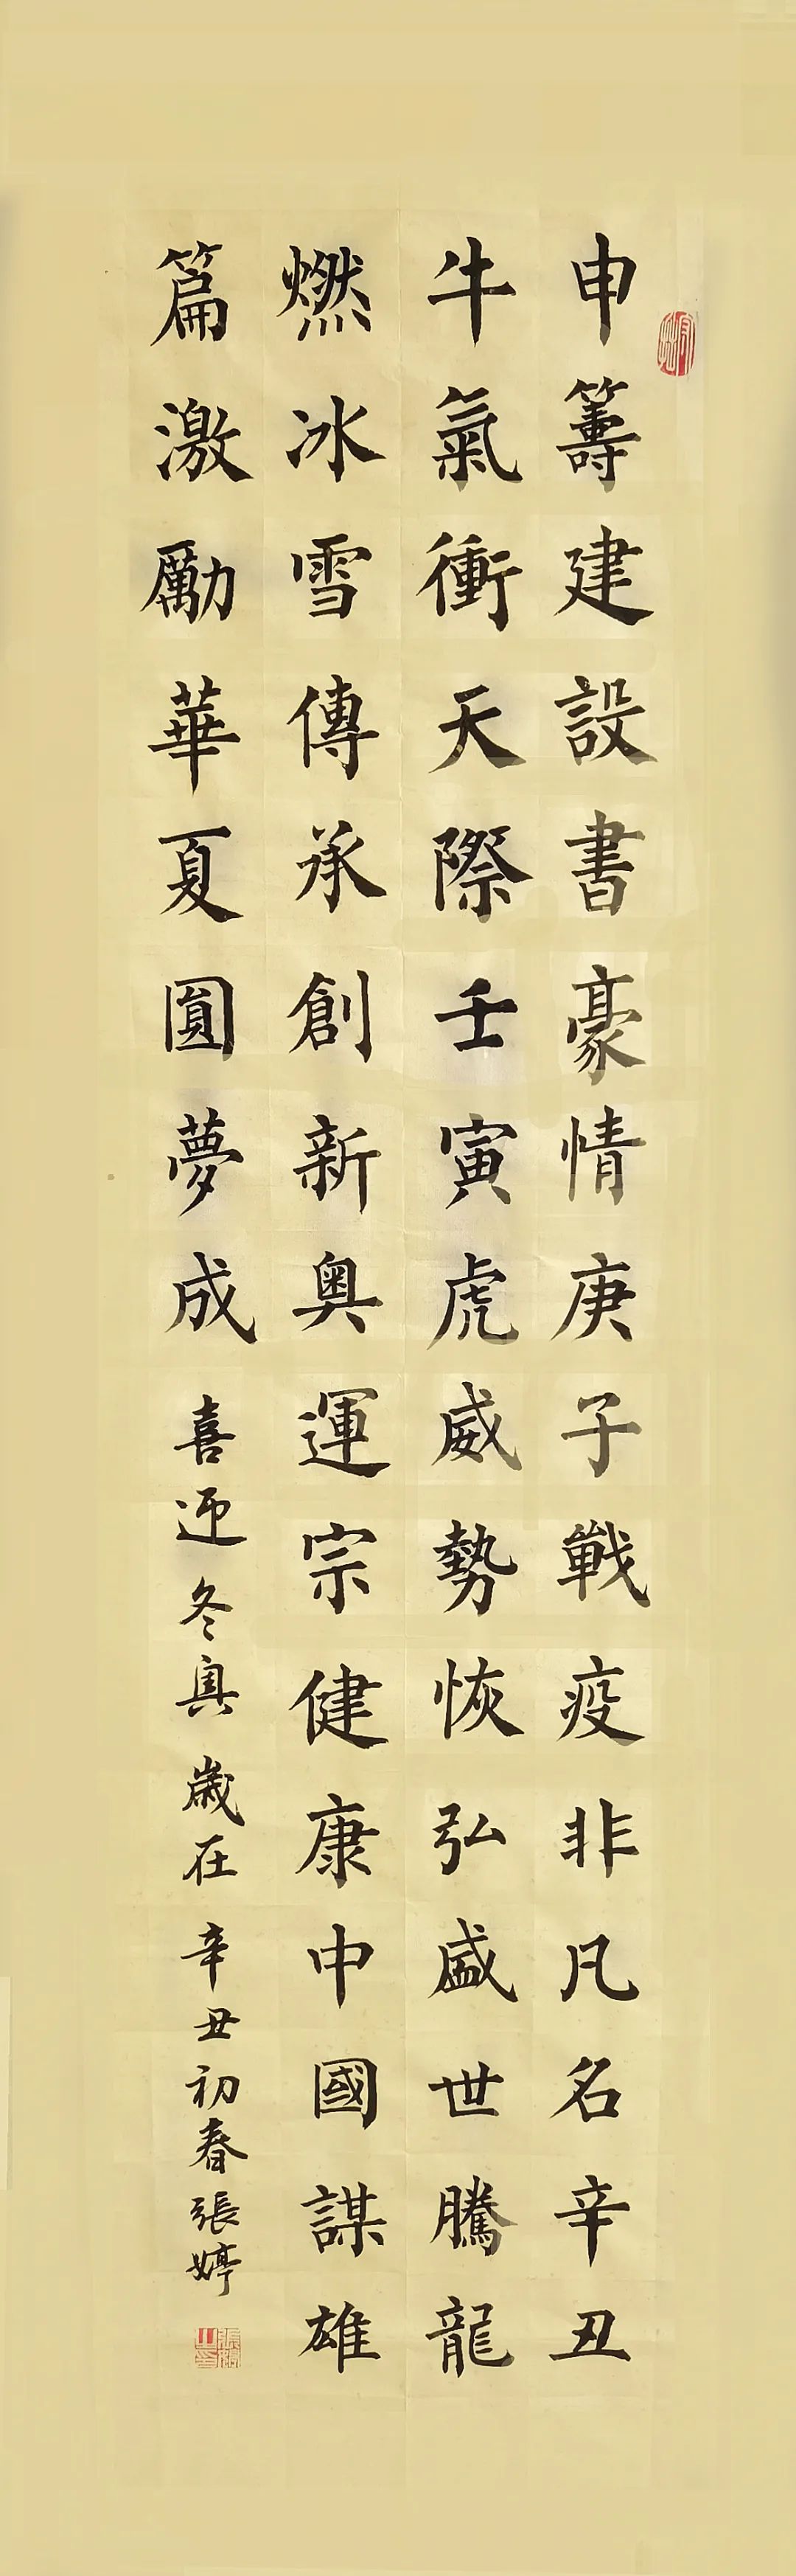 申籌建設書豪情庚子戰疫非凡名辛丑
牛氣衝天際壬寅虎威勢恢弘盛世騰龍
燃冰雪傳承創新奧運宗健康中國謀雄
篇激勵華夏圓夢成
喜迎冬奧歲在辛丑初春張婷